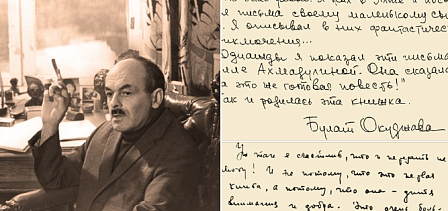 я письма своему маленькому сы
Я описывал в них фантастичес
иключения...
Однажды я показал эти письма
елле Ахмадулиной. Она сказа
а это же готовая повесть!"
ак и родилась эта книжка.
Булат Окуджава
что я
могу! И не потому, что это
книга, а потому, что она - учит
вниманию и добра. Это очень боль-